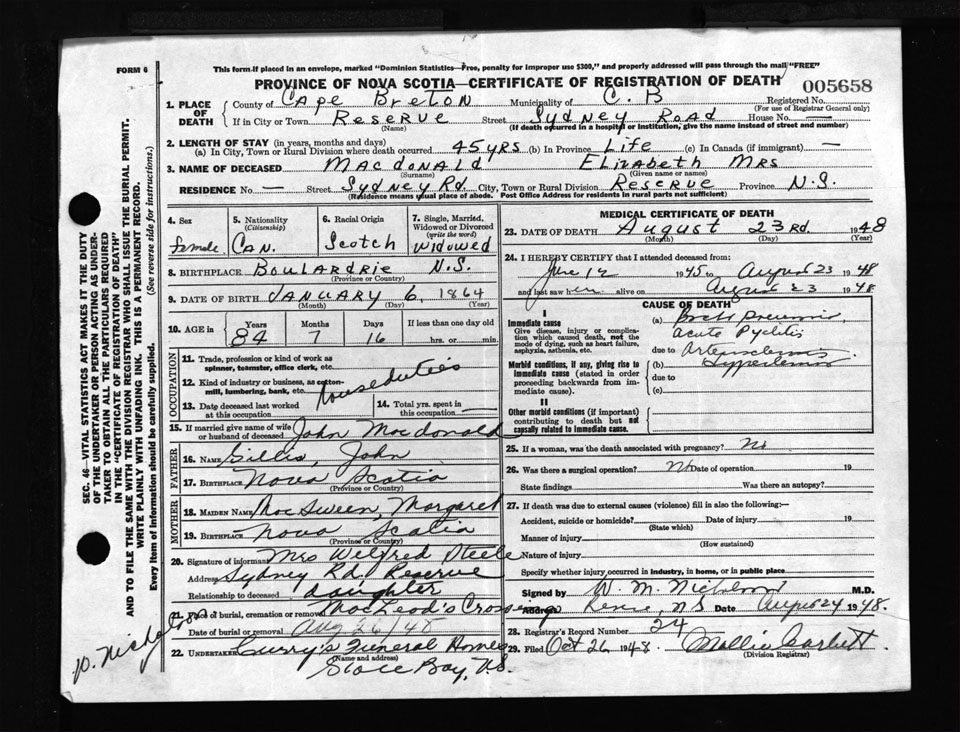 FORM 6
This form if placed in an envelope, marked "Dominion Statistics—Free, penalty for improper use $300," and properly addressed will pass through the mail "FREE"
PROVINCE OF NOVA SCOTIA—CERTIFICATE OF REGISTRATION OF DEATH
005658
1. PLACE OF DEATH County of Cape Breton Municipality of C. B Registered No.
(For use of Registrar General only)
If in City or Town Reserve Street Sydney Road House No. —
(Name) (If death occurred in a hospital or institution, give the name instead of street and number)
2. LENGTH OF STAY (in years, months and days)
(a) In City, Town or Rural Division where death occurred 45 yrs (b) In Province Life (c) In Canada (if immigrant) —
3. NAME OF DECEASED Macdonald Elizabeth Mrs
(Surname) (Given name or names)
RESIDENCE No. — Street Sydney Rd. City, Town or Rural Division Reserve Province N.S.
(Residence means usual place of abode. Post Office Address for residents in rural parts not sufficient)
4. Sex 5. Nationality (Citizenship) 6. Racial Origin 7. Single, Married, Widowed or Divorced (write the word)
female Can. Scotch Widowed
8. BIRTHPLACE Boulardrie N.S.
(Province or Country)
9. DATE OF BIRTH January 6, 1864
(Month) (Day) (Year)
10. AGE in Years Months Days If less than one day old
84 7 16 hrs. or min.
OCCUPATION
11. Trade, profession or kind of work as spinner, teamster, office clerk, etc.
12. Kind of industry or business, as cotton-mill, lumbering, bank, etc. houseduties
13. Date deceased last worked at this occupation
14. Total yrs. spent in this occupation —
15. If married give name of wife or husband of deceased John Macdonald
FATHER
16. NAME Gillis, John
17. BIRTHPLACE Nova Scotia
(Province or Country)
MOTHER
18. MAIDEN NAME MacSween, Margaret
19. BIRTHPLACE Nova Scotia
(Province or Country)
20. Signature of informant Mrs Welfred Steele
Address Sydney Rd. Reserve
Relationship to deceased daughter
21. Place of burial, cremation or removal MacLeod's Crossing
Date of burial or removal Aug 26/48
22. UNDERTAKER Curry's Funeral Home
(Name and address)
Glace Bay, N.S.
MEDICAL CERTIFICATE OF DEATH
23. DATE OF DEATH August 23rd. 1948
(Month) (Day) (Year)
24. I HEREBY CERTIFY that I attended deceased from:
June 12 1945 to August 23 1948
and last saw her alive on August 23 1948
CAUSE OF DEATH
I
Immediate cause
Give disease, injury or complication which caused death, not the mode of dying, such as heart failure, asphyxia, asthenia, etc.
(a)
Acute Pyelitis
due to
Morbid conditions, if any, giving rise to immediate cause (stated in order proceeding backwards from immediate cause).
(b)
due to
(c)
II
Other morbid conditions (if important) contributing to death but not causally related to immediate cause.
25. If a woman, was the death associated with pregnancy? No
26. Was there a surgical operation? No Date of operation 19
State findings Was there an autopsy?
27. If death was due to external causes (violence) fill in also the following:—
Accident, suicide or homicide? Date of injury 19
(State which)
Manner of injury
(How sustained)
Nature of injury
Specify whether injury occurred in industry, in home, or in public place
Signed by W. M. Nicholson M.D.
Address Reserve, NS Date August 24 1948.
28. Registrar's Record Number 24
29. Filed Oct 26 1948. Mollie Corbett
(Division Registrar)
SEC. 46—VITAL STATISTICS ACT MAKES IT THE DUTY OF THE UNDERTAKER OR PERSON ACTING AS UNDERTAKER TO OBTAIN ALL THE PARTICULARS REQUIRED IN THE "CERTIFICATE OF REGISTRATION OF DEATH" AND TO FILE THE SAME WITH THE DIVISION REGISTRAR WHO SHALL ISSUE THE BURIAL PERMIT.
WRITE PLAINLY WITH UNFADING INK. THIS IS A PERMANENT RECORD.
Every item of Information should be carefully supplied. (See reverse side for instructions.)